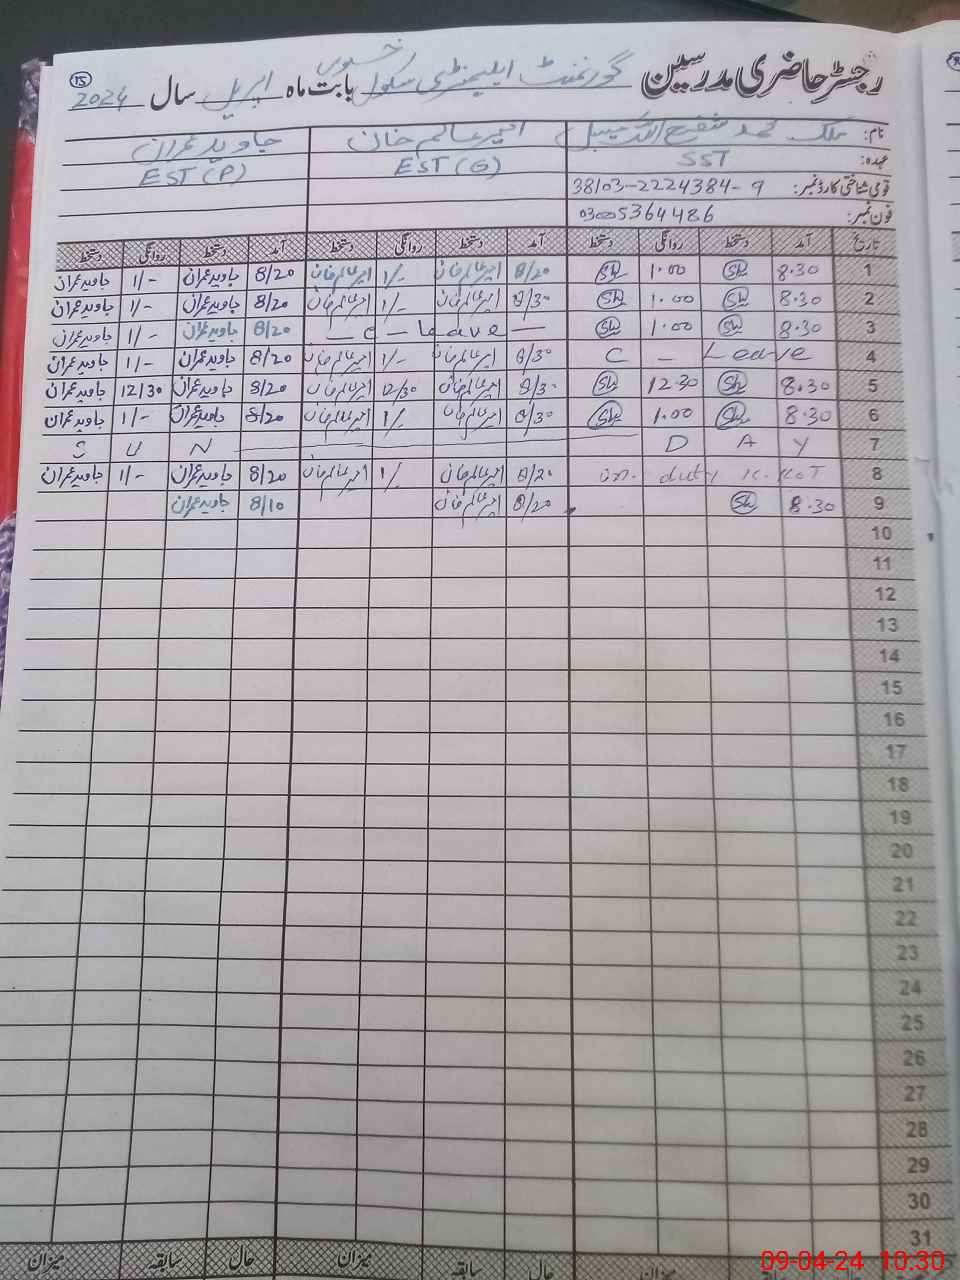 رجسٹر حاضری مدرسین گورنمنٹ ایلیمنٹری سکول بابت ماہ اپریل سال 2024
15
نام: ملک محمد امیر عالم خان جاوید عمران
عہدہ: SST EST (G) EST (P)
قومی شناختی کارڈ نمبر: 38103-2224384-9
فون نمبر:
تاریخ آمد دستخط روانگی دستخط آمد دستخط روانگی دستخط آمد دستخط روانگی دستخط
1 8.30 1.00 8/20 امیر عالم خان 1/- امیر عالم خان 8/20 جاوید عمران 1/- جاوید عمران
2 8.30 1.00 8/30 امیر عالم خان 1/- امیر عالم خان 8/20 جاوید عمران 1/- جاوید عمران
3 8.30 1.00 — C — Leave — 8/20 جاوید عمران 1/- جاوید عمران
4 C — Leave 8/30 امیر عالم خان 1/- امیر عالم خان 8/20 جاوید عمران 1/- جاوید عمران
5 8.30 12.30 8/30 امیر عالم خان 12/30 امیر عالم خان 8/20 جاوید عمران 12/30 جاوید عمران
6 8.30 1.00 8/30 امیر عالم خان 1/- امیر عالم خان 8/20 جاوید عمران 1/- جاوید عمران
7 S U N D A Y
8 on duty 8/20 امیر عالم خان 1/- امیر عالم خان 8/20 جاوید عمران 1/- جاوید عمران
9 8.30 8/20 امیر عالم خان 8/10 جاوید عمران
10
11
12
13
14
15
16
17
18
19
20
21
22
23
24
25
26
27
28
29
30
31
سابقہ حال میزان سابقہ حال میزان
09-04-24 10:30